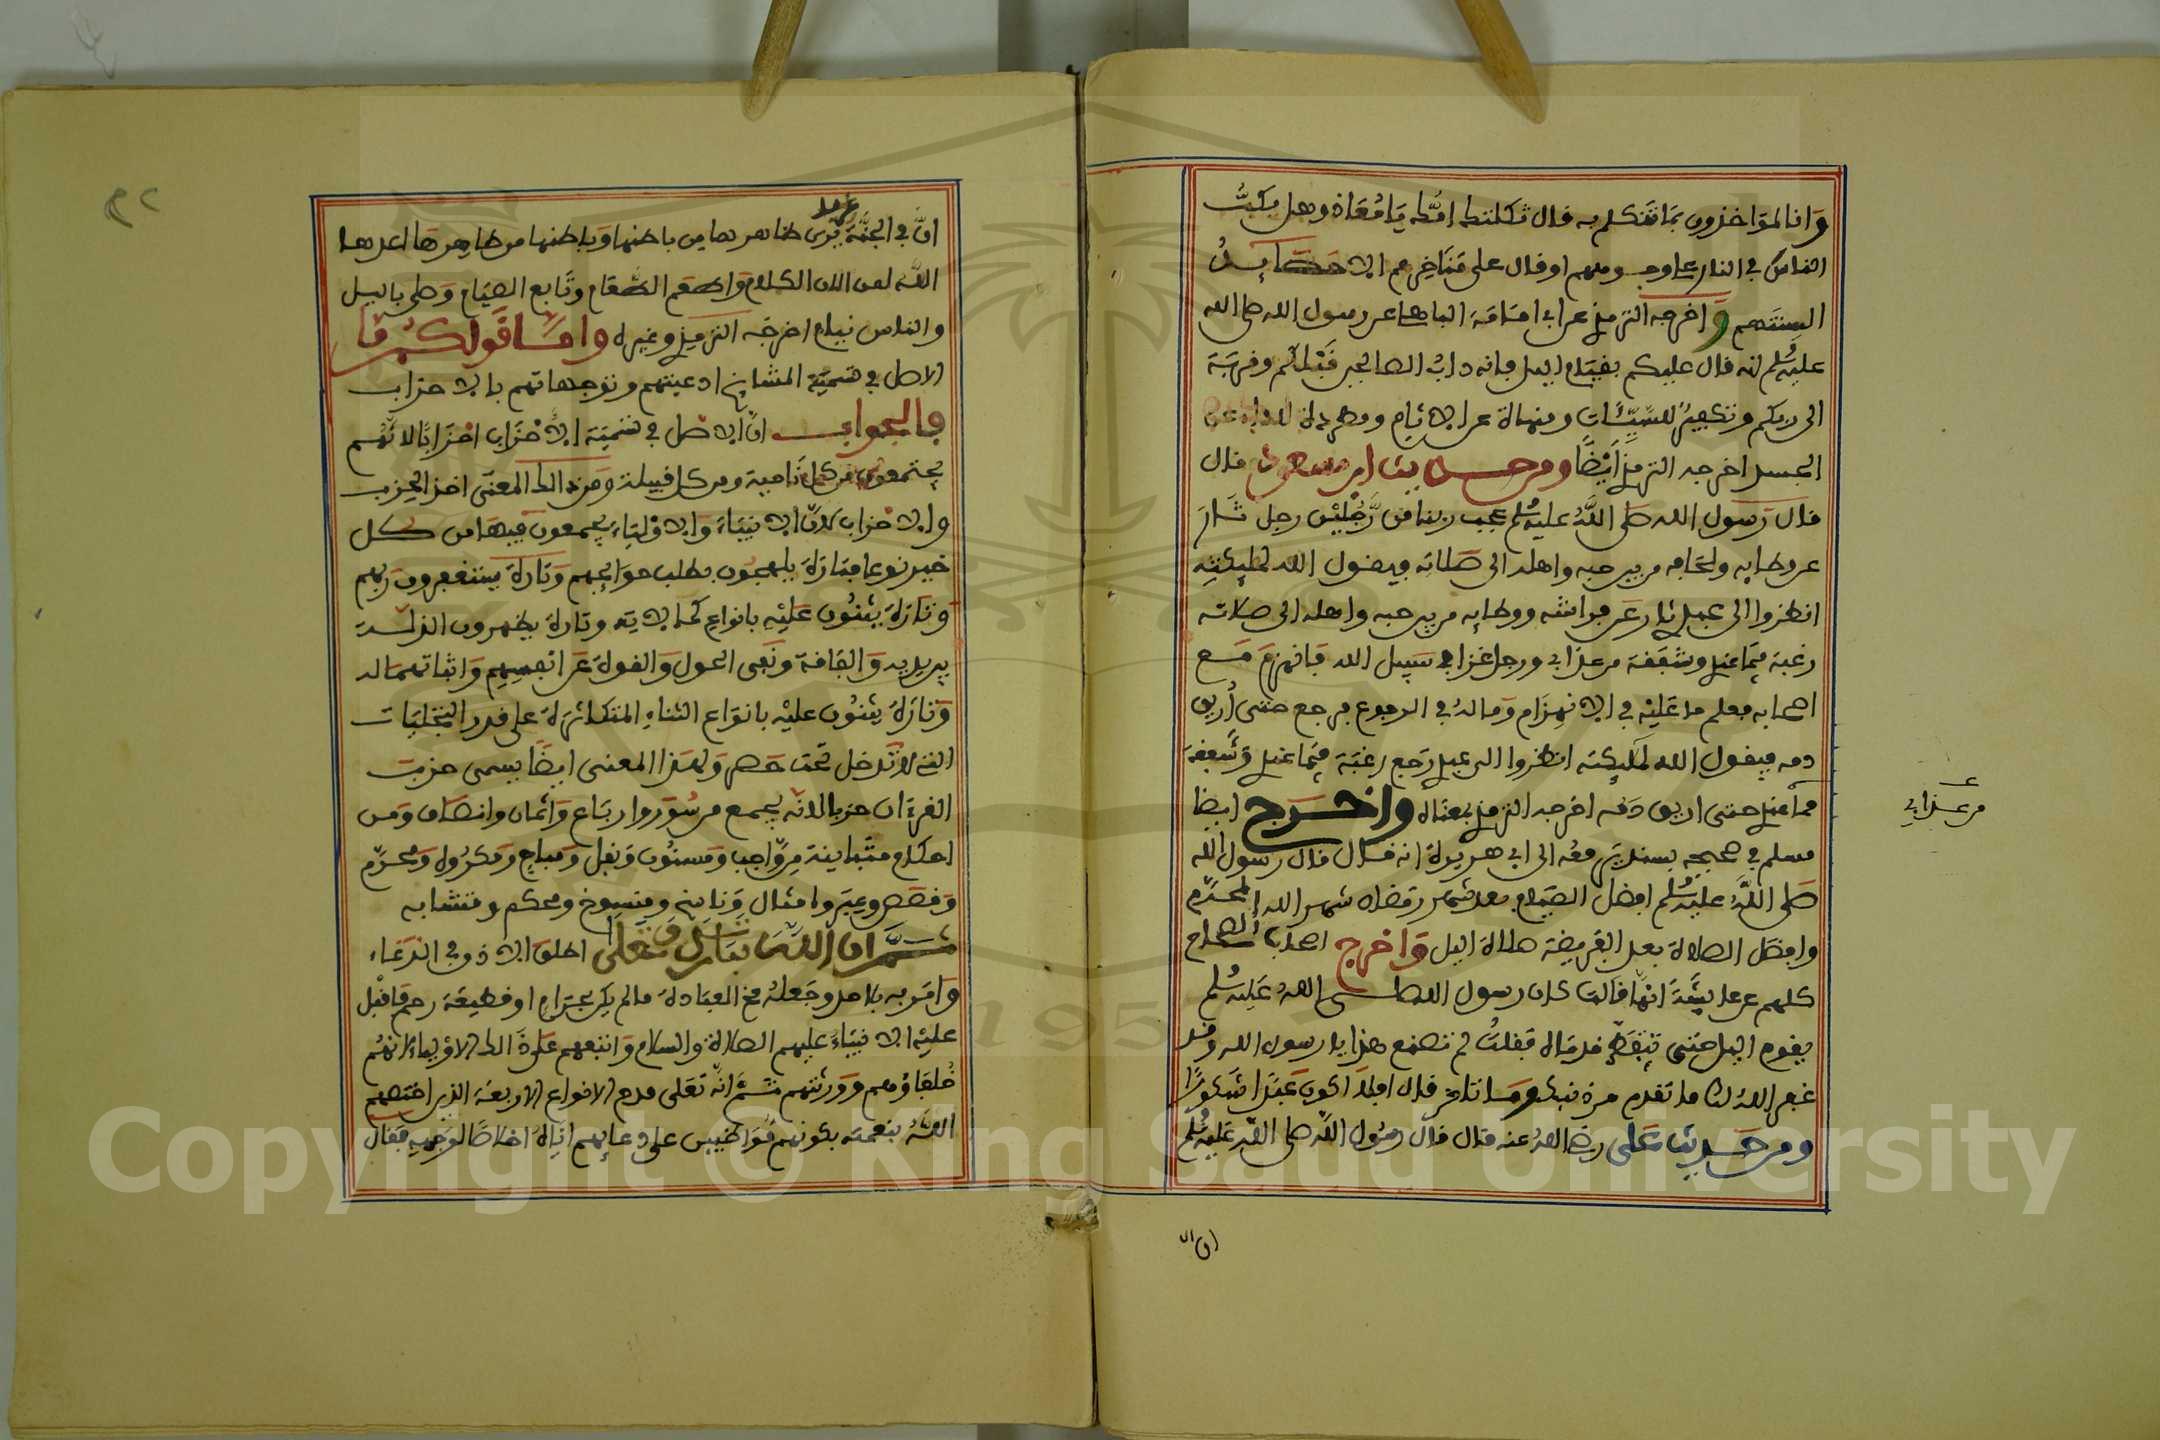 وانا لمواخذون بما نتكلم به فال ثكلتك امك يا معاذ وهل يكب
الناس في النار على وجوههم او فال على مناخرهم الا حصايد
السنتهم واخرج الترمذي عن ابي امامة الباهلي عن رسول الله صلى الله
عليه وسلم انه فال عليكم بفيام اليل فانه داب الصالحين فبلكم وفربة
الى ربكم وتكفير للسيئات ومنهاة عن الاثام ومطردة للداء عن
الجسد اخرجه الترمذي ايضا ومن حديث ابن مسعود فال
فال رسول الله صلى الله عليه وسلم عجب ربنا من رجلين رجل ثار
عن وطايه ولحافه من بين حبه واهله الى صلاته فيفول الله لمليكته
انظروا الى عبدي ثار عن فراشه ووطايه من بين حبه واهله الى صلاته
رغبة فيما عندي وشففة من عذابي ورجل غزا في سبيل الله فانهزم مع
اصحابه فعلم ما عليه في الانهزام وماله في الرجوع فرجع حتى اريق
دمه فيفول الله لمليكته انظروا الى عبدي رجع رغبة فيما عندي وشففة
مما عندي حتى اريق دمه اخرجه الترمذي بمعناه واخرج ايضا
مسلم في صحيحه بسند يرفعه الى ابي هريرة انه فال فال رسول الله
صلى الله عليه وسلم افضل الصيام بعد شهر رمضان شهر الله المحرم
وافضل الصلاة بعد الفريضة صلاة اليل واخرج اصحاب الصحاح
كلهم عن عايشة انها فالت كان رسول الله صلى الله عليه وسلم
يفوم اليل حتى تتفطر فدماه ففلت لم تصنع هذا يا رسول الله وفد
غفر الله لك ما تقدم من ذنبك وما تاخر فال افلا اكون عبدا شكورا
ومن حديث علي رضي الله عنه فال فال رسول الله صلى الله عليه وسلم
من عذابي
ان
ان في الجنة غرفا يرى ظاهرها من باطنها وباطنها من ظاهرها اعدها
الله لمن الان الكلام واطعم الطعام وتابع الصيام وصلى باليل
والناس نيام اخرجه الترمذي وغيره واما فولكم ما
الاصل في تسمية المشايخ ادعيتهم وتوجهاتهم بالاحزاب
فالجواب ان الاصل في تسمية الاحزاب احزابا لانهم
يجتمعون من كل ناحية ومن كل فبيلة ومن ذلك المعنى اخذ الحزب
والاحزاب لان الانبياء والاولياء يجمعون فيها من كل
خير نوعا فتارة يلهجون بطلب حوايجهم وتارة يستغفرون ربهم
وتارة يثنون عليه بانواع كمالاته وتارة يظهرون الذلة
بين يديه والفافة ونفي الحول والفوة عن انفسهم واثباتهما له
وتارة يثنون عليه بانواع الثناء المتكاثرة على فدر التجليات
التي لا تدخل تحت حصر ولهذا المعنى ايضا يسمى حزب
الفرءان حزبا لانه يجمع من سور وارباع واثمان وانصاف ومن
احكام متباينة من واجب ومسنون ونفل ومباح ومكروه ومحرم
وفصص وعبر وامثال وناسخ ومنسوخ ومحكم ومتشابه
ثم ان الله تبارك وتعالى اطلق الاذن في الدعاء
وامر به بلا حد وجعله مخ العبادة ما لم يكن بحرام او فطيعة رحم فافبل
عليه الانبياء عليهم الصلاة والسلام واتبعهم على ذلك الاولياء لانهم
خلفاؤهم وورثتهم ثم انه تعلى مدح الافوام الاربعة الذين اختصهم
الله بنعمته بكونهم مواظبين على دعايهم اياه اخلاصا لوجهه ففال
Copyright © King Saud University
1957